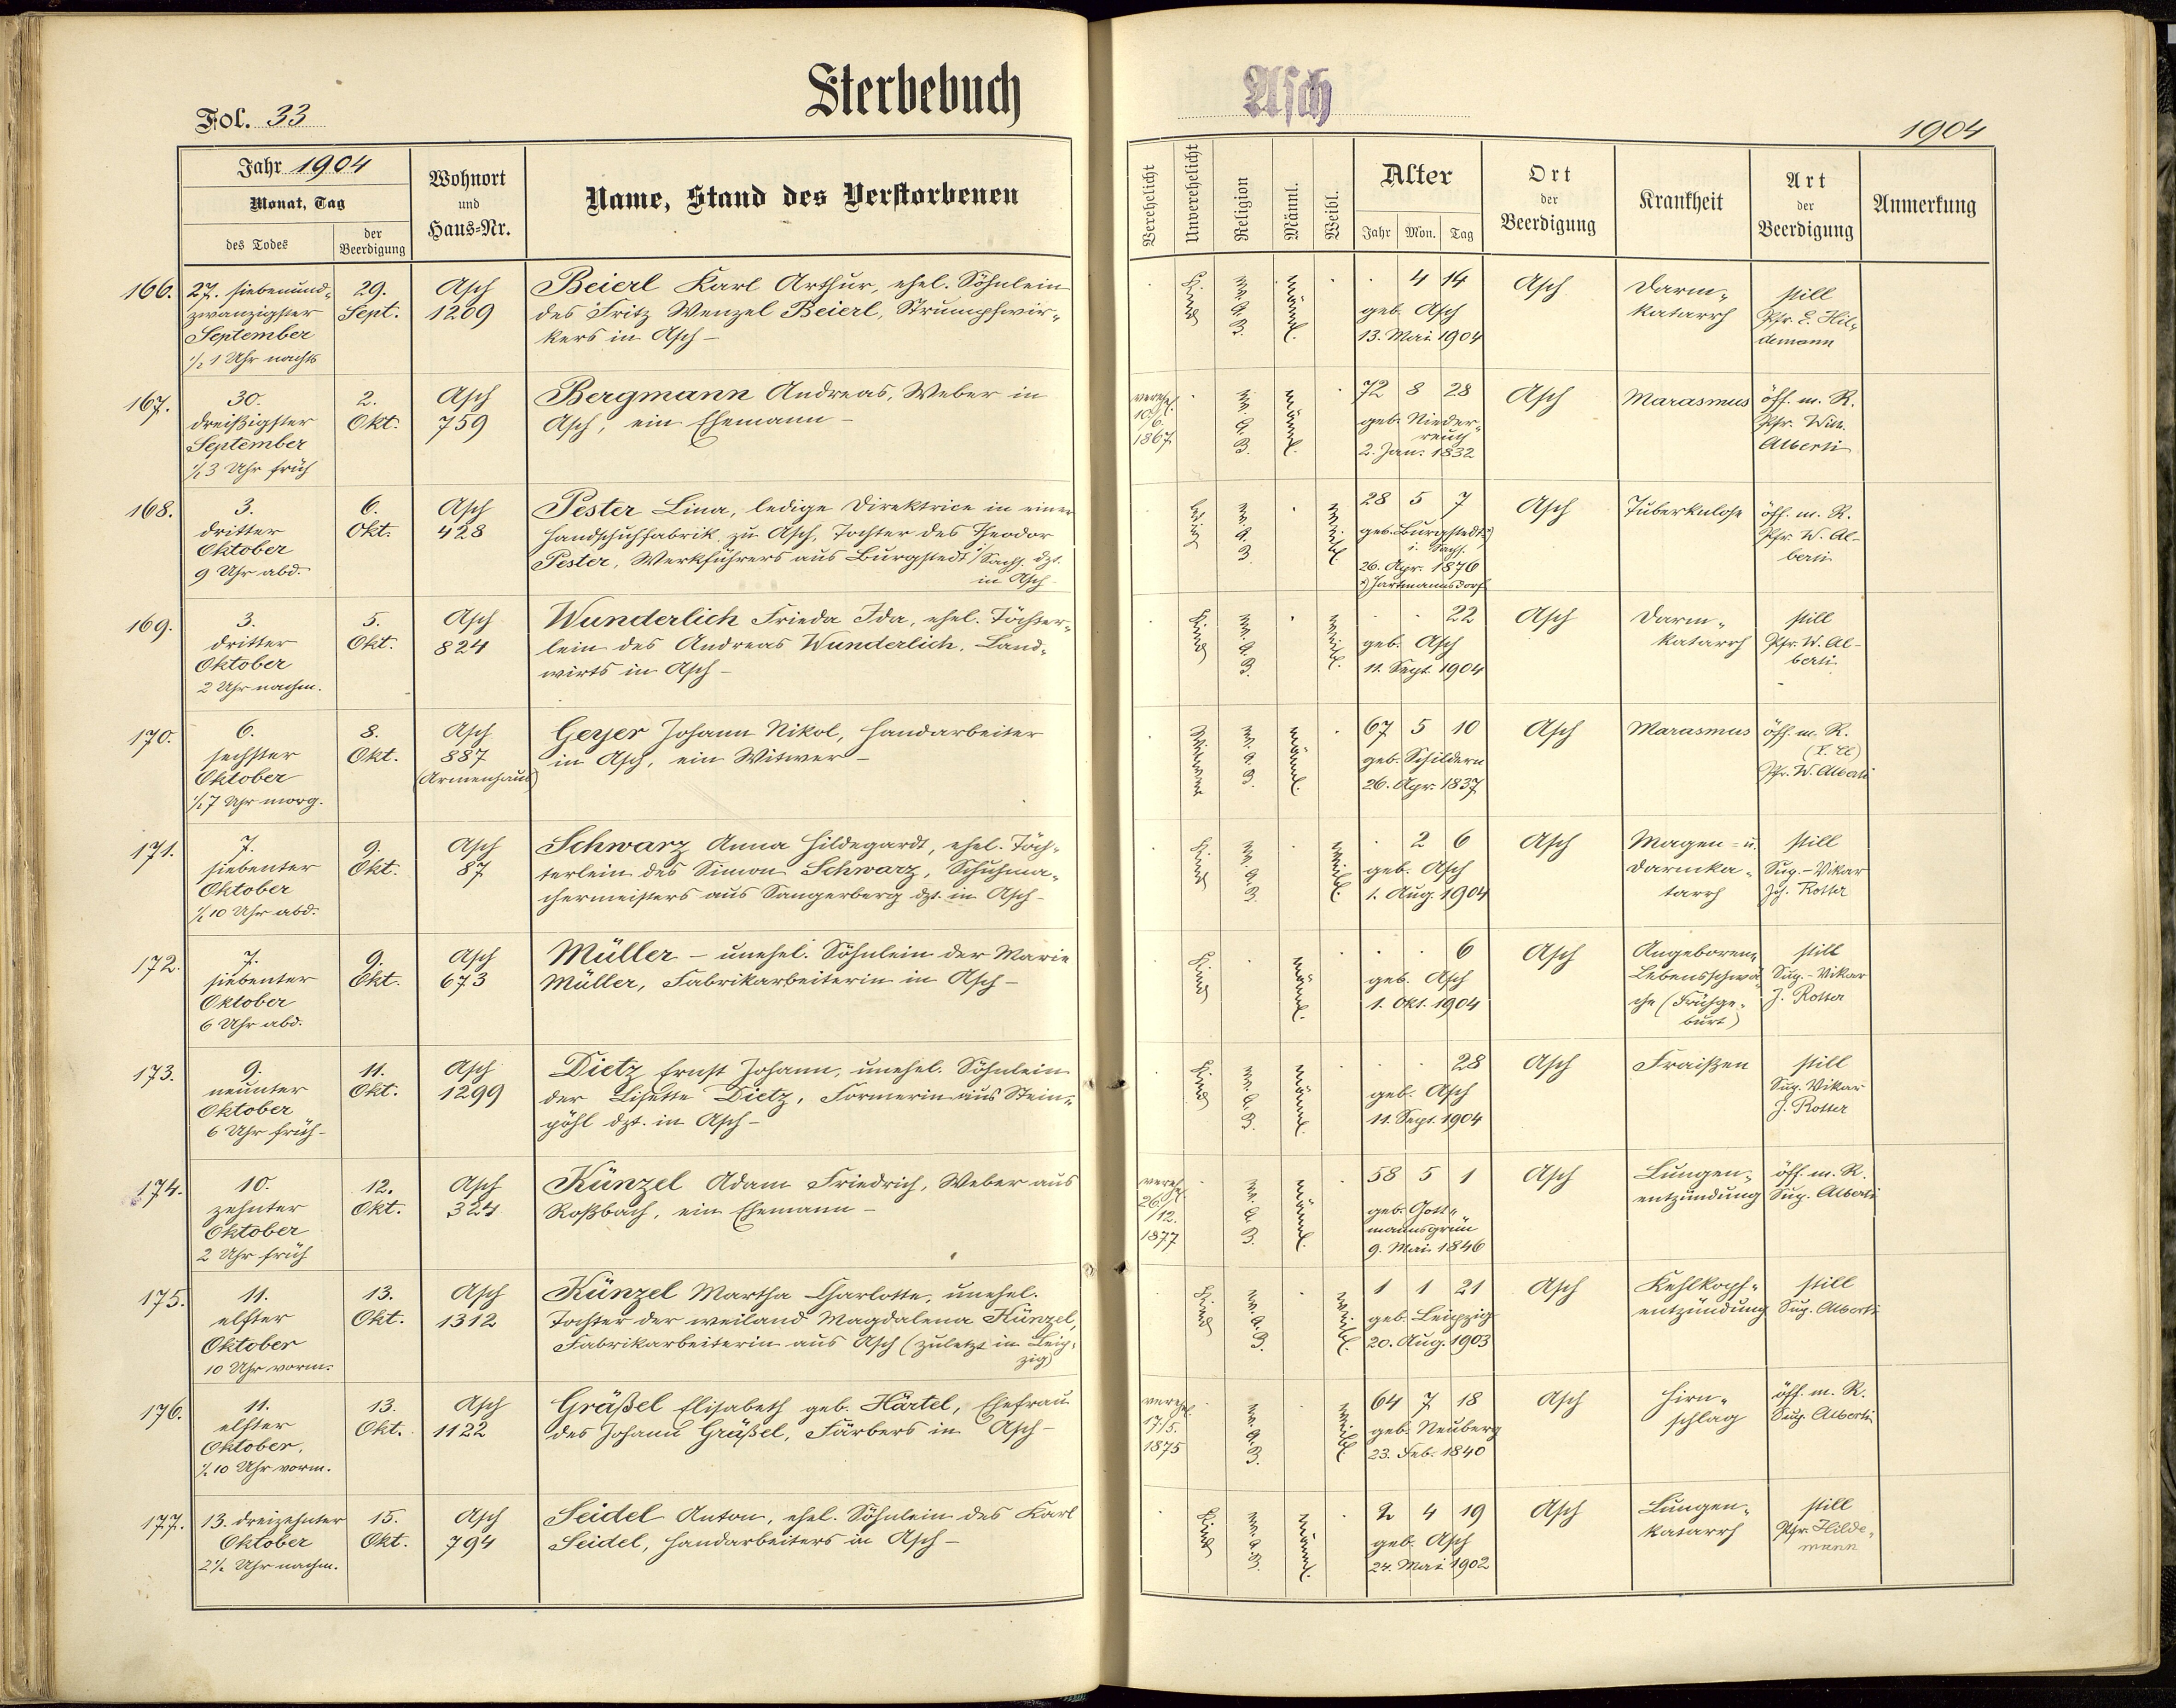 Sterbebuch
Asch
Fol. 33
1904
Jahr 1904
Monat, Tag
des Todes
der Beerdigung
Wohnort
und
Haus-Nr.
Name, Stand des Verstorbenen
Verehelicht
Unverehelicht
Religion
Männl.
Weibl.
Alter
Jahr Mon. Tag
Ort
der
Beerdigung
Krankheit
Art
der
Beerdigung
Anmerkung
166. 27. siebenund-
zwanzigster
September
½ 1 Uhr nachts
29.
Sept.
Asch
1209
Beierl Karl Arthur, ehel. Söhnlein
des Fritz Wenzel Beierl, Strumpfwir-
kers in Asch –
Kind
ev. A. B.
männl.
4 14
geb. Asch
13. Mai 1904
Asch
Darm-
katarrh
still
Pfr. E. Hil-
demann
167. 30.
dreißigster
September
½ 3 Uhr früh
2.
Okt.
Asch
759
Bergmann Andreas, Weber in
Asch, ein Ehemann –
verehel.
10/6.
1867.
ev. A. B.
männl.
72 8 28
geb. Nieder-
reuth
2. Jan. 1832
Asch
Marasmus
öff. m. R.
Pfr. Wilh.
Alberti
168. 3.
dritter
Oktober
9 Uhr abd.
6.
Okt.
Asch
428
Pester Lina, ledige Direktrice in einer
Handschuhfabrik zu Asch, Tochter des Theodor
Pester, Werkführers aus Burgstedt / Sachs. dzt.
in Asch
ledig
ev. A. B.
weibl.
28 5 7
geb. Burgstedt x)
i. Sachs.
26. Apr. 1876
x) Hartmannsdorf
Asch
Tuberkulose
öff. m. R.
Pfr. W. Al-
berti
169. 3.
dritter
Oktober
2 Uhr nachm.
5.
Okt.
Asch
824
Wunderlich Frieda Ida, ehel. Töchter-
lein des Andreas Wunderlich, Land-
wirts in Asch –
Kind
ev. A. B.
weibl.
22
geb. Asch
11. Sept. 1904
Asch
Darm-
katarrh
still
Pfr. W. Al-
berti
170. 6.
sechster
Oktober
½ 7 Uhr morg.
8.
Okt.
Asch
887
(Armenhaus)
Geyer Johann Nikol, Handarbeiter
in Asch, ein Witwer –
Witwer
ev. A. B.
männl.
67 5 10
geb. Schildern
26. Apr. 1837
Asch
Marasmus
öff. m. R.
Pfr. W. Alberti
171. 7.
siebenter
Oktober
½ 10 Uhr abd.
9.
Okt.
Asch
87
Schwarz Anna Hildegardt, ehel. Töch-
terlein des Simon Schwarz, Schuhma-
chermeisters aus Sangerberg dzt. in Asch –
Kind
ev. A. B.
weibl.
2 6
geb. Asch
1. Aug. 1904
Asch
Magen- u.
Darmka-
tarrh
still
Sup.-Vikar
Joh. Rotter
172. 7.
siebenter
Oktober
6 Uhr abd.
9.
Okt.
Asch
673
Müller – unehel. Söhnlein der Marie
Müller, Fabrikarbeiterin in Asch –
Kind
männl.
6
geb. Asch
1. Okt. 1904
Asch
Angeborene
Lebensschwä-
che (Frühge-
burt)
still
Sup.-Vikar
J. Rotter
173. 9.
neunter
Oktober
6 Uhr früh –
11.
Okt.
Asch
1299
Dietz Ernst Johann, unehel. Söhnlein
der Lisette Dietz, Formerin aus Stein-
pöhl dzt. in Asch –
Kind
ev. A. B.
männl.
28
geb. Asch
11. Sept. 1904
Asch
Fraißen
still
Sup. Vikar
J. Rotter
174. 10.
zehnter
Oktober
2 Uhr früh
12.
Okt.
Asch
324
Künzel Adam Friedrich, Weber aus
Roßbach, ein Ehemann –
verehel.
26./12.
1877
ev. A. B.
männl.
58 5 1
geb. Gott-
mannsgrün
9. Mai 1846
Asch
Lungen-
entzündung
öff. m. R.
Sup. Alberti
175. 11.
elfter
Oktober
10 Uhr vorm.
13.
Okt.
Asch
1312
Künzel Martha Charlotte, unehel.
Tochter der weiland Magdalena Künzel,
Fabrikarbeiterin aus Asch (zuletzt in Leip-
zig)
Kind
ev. A. B.
weibl.
1 1 21
geb. Leipzig
20. Aug. 1903
Asch
Kehlkopf-
entzündung
still
Sup. Alberti
176. 11.
elfter
Oktober.
½ 10 Uhr vorm.
13.
Okt.
Asch
1122
Gräßel Elisabeth geb. Härtel, Ehefrau
des Johann Gräßel, Färbers in Asch –
verehel.
17./5.
1875
ev. A. B.
weibl.
64 7 18
geb. Neuberg
23. Feb. 1840
Asch
Hirn-
schlag
öff. m. R.
Sup. Alberti
177. 13. dreizehnter
Oktober
2½ Uhr nachm.
15.
Okt.
Asch
794
Seidel Anton, ehel. Söhnlein des Karl
Seidel, Handarbeiters in Asch –
Kind
ev. A. B.
männl.
2 4 19
geb. Asch
24. Mai 1902
Asch
Lungen-
katarrh
still
Pfr. Hilde-
mann